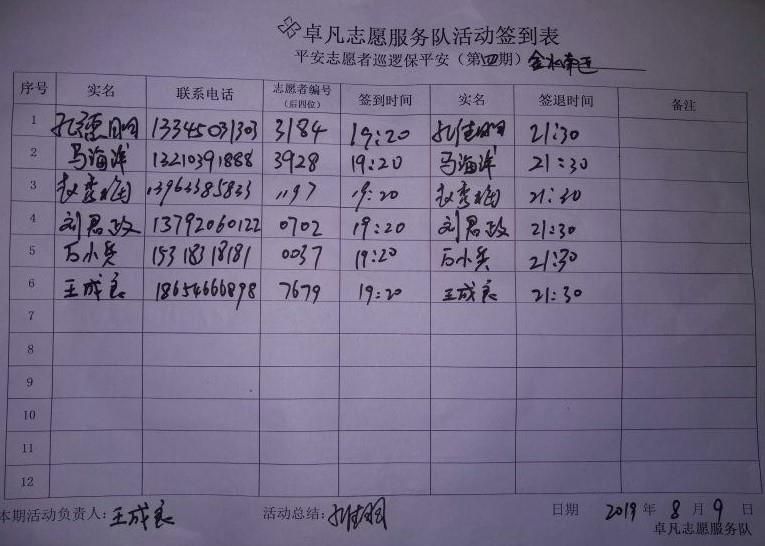 卓凡志愿服务队活动签到表
平安志愿者巡逻保平安（第四期）金水南
序号 实名 联系电话 志愿者编号（后四位） 签到时间 实名 签退时间 备注
1 13345031303 3184 19:20 21:30
2 马海洋 13210391888 3928 19:20 马海洋 21:30
3 13963385833 1197 19:20 21:30
4 刘君政 13792060122 0702 19:20 刘君政 21:30
5 15318318181 0037 19:20 21:30
6 王成良 18654666898 7679 19:20 王成良 21:30
7
8
9
10
11
12
本期活动负责人：王成良 活动总结： 日期 2019年8月9日
卓凡志愿服务队